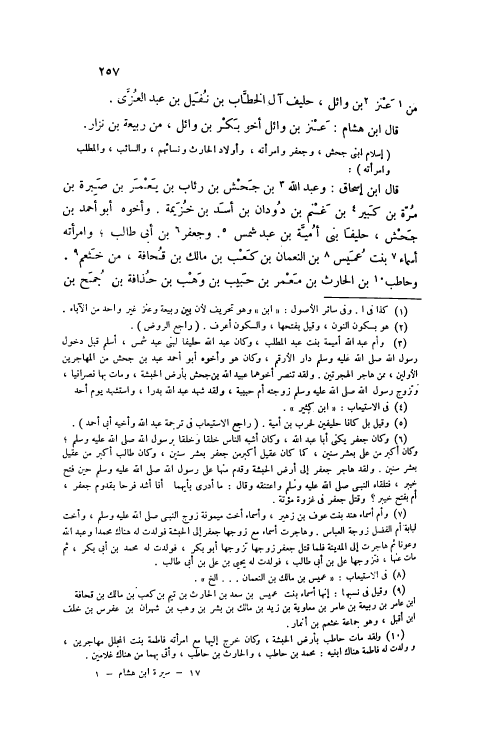 ٢٥٧
من ١ عَنْز ٢ بن وائل ، حليف آل الخطَّاب بن نُفَيل بن عبد العُزَّى .
قال ابن هشام : عَنْز بن وائل أخو بَكْر بن وائل ، من ربيعة بن نزار .
( إسلام ابنى جحش ، وجعفر وامرأته ، وأولاد الحارث ونسائهم ، والسائب ، والمطلب
وامرأته ) :
قال ابن إسحاق : وعبدالله ٣ بن جَحْش بن رئاب بن يَعْمَر بن صَبِرة بن
مُرَّة بن كَبير ٤ بن غَنْم بن دُودان بن أسد بن خُزَيمة . وأخوه أبو أحمد بن
جَحْش ، حليفا بنى أُميَّة بن عبد شمس ٥. وجعفر ٦ بن أبى طالب ؛ وامرأته
أسماء ٧ بنت عُمَيس ٨ بن النعمان بن كَعْب بن مالك بن قُحافة ، من خَثْعم ٩ .
وحاطب ١٠ بن الحارث بن مَعْمر بن حَبيب بن وَهْب بن حُذافة بن جُمَح بن
(١) كذا فى ا . وفى سائر الأصول : « ابن » وهو تحريف لأن بين ربيعة وعنز غير واحد من الآباء .
(٢) هو بسكون النون ، وقيل بفتحها ، والسكون أعرف . ( راجع الروض ) .
(٣) وأم عبد الله أميمة بنت عبد المطلب ، وكان عبد الله حليفا لبنى عبد شمس ، أسلم قبل دخول
رسول الله صلى الله عليه وسلم دار الأرقم ، وكان هو وأخوه أبو أحمد عبد بن جحش من المهاجرين
الأولين ، ممن هاجر الهجرتين . ولقد تنصر أخوهما عبيد الله بن جحش بأرض الحبشة ، ومات بها نصرانيا ،
وتزوج رسول الله صلى الله عليه وسلم زوجته أم حبيبة ، ولقد شهد عبد الله بدرا ، واستشهد يوم أحد
(٤) فى الاستيعاب : « ابن كثير » .
(٥) وقيل بل كانا حليفين لحرب بن أمية . ( راجع الاستيعاب فى ترجمة عبد الله وأخيه أبى أحمد ) .
(٦) وكان جعفر يكنى أبا عبد الله ، وكان أشبه الناس خلقا وخلقا برسول الله صلى الله عليه وسلم ؛
وكان أكبر من على بعشر سنين ، كما كان عقيل أكبر من جعفر بعشر سنين ، وكان طالب أكبر من عقيل
بعشر سنين . ولقد هاجر جعفر إلى أرض الحبشة وقدم منها على رسول الله صلى الله عليه وسلم حين فتح
خيبر ، فتلقاه النبى صلى الله عليه وسلم واعتنقه وقال : ما أدرى بأيهما أنا أشد فرحا بقدوم جعفر ،
أم بفتح خيبر ؟ وقتل جعفر فى غزوة مؤتة .
(٧) وأم أسماء هند بنت عوف بن زهير ، وأسماء أخت ميمونة زوج النبى صلى الله عليه وسلم ، وأخت
لبابة أم الفضل زوجة العباس . وهاجرت أسماء مع زوجها جعفر إلى الحبشة فولدت له هناك محمدا وعبد الله
وعونا ثم هاجرت إلى المدينة فلما قتل جعفر زوجها تزوجها أبو بكر ، فولدت له محمد بن أبى بكر ، ثم
مات عنها ، فتزوجها على بن أبى طالب ، فولدت له يحيى بن على بن أبى طالب .
(٨) فى الاستيعاب : « عميس بن مالك بن النعمان . . . الخ » .
(٩) وقيل فى نسبها : إنها أسماء بنت عميس بن سعد بن الحارث بن تيم بن كعب بن مالك بن قحافة
ابن عامر بن ربيعة بن عامر بن معاوية بن زيد بن مالك بن بشر بن وهب بن شهران بن عفرس بن خلف
ابن أفيل ، وهو جماعة خثعم بن أنمار .
(١٠) ولقد مات حاطب بأرض الحبشة ، وكان خرج إليها مع امرأته فاطمة بنت المجلل مهاجرين ،
وولدت له فاطمة هناك ابنيه : محمد بن حاطب ، والحارث بن حاطب ، وأتى بهما من هناك غلامين .
١٧ - سيرة ابن هشام - ١